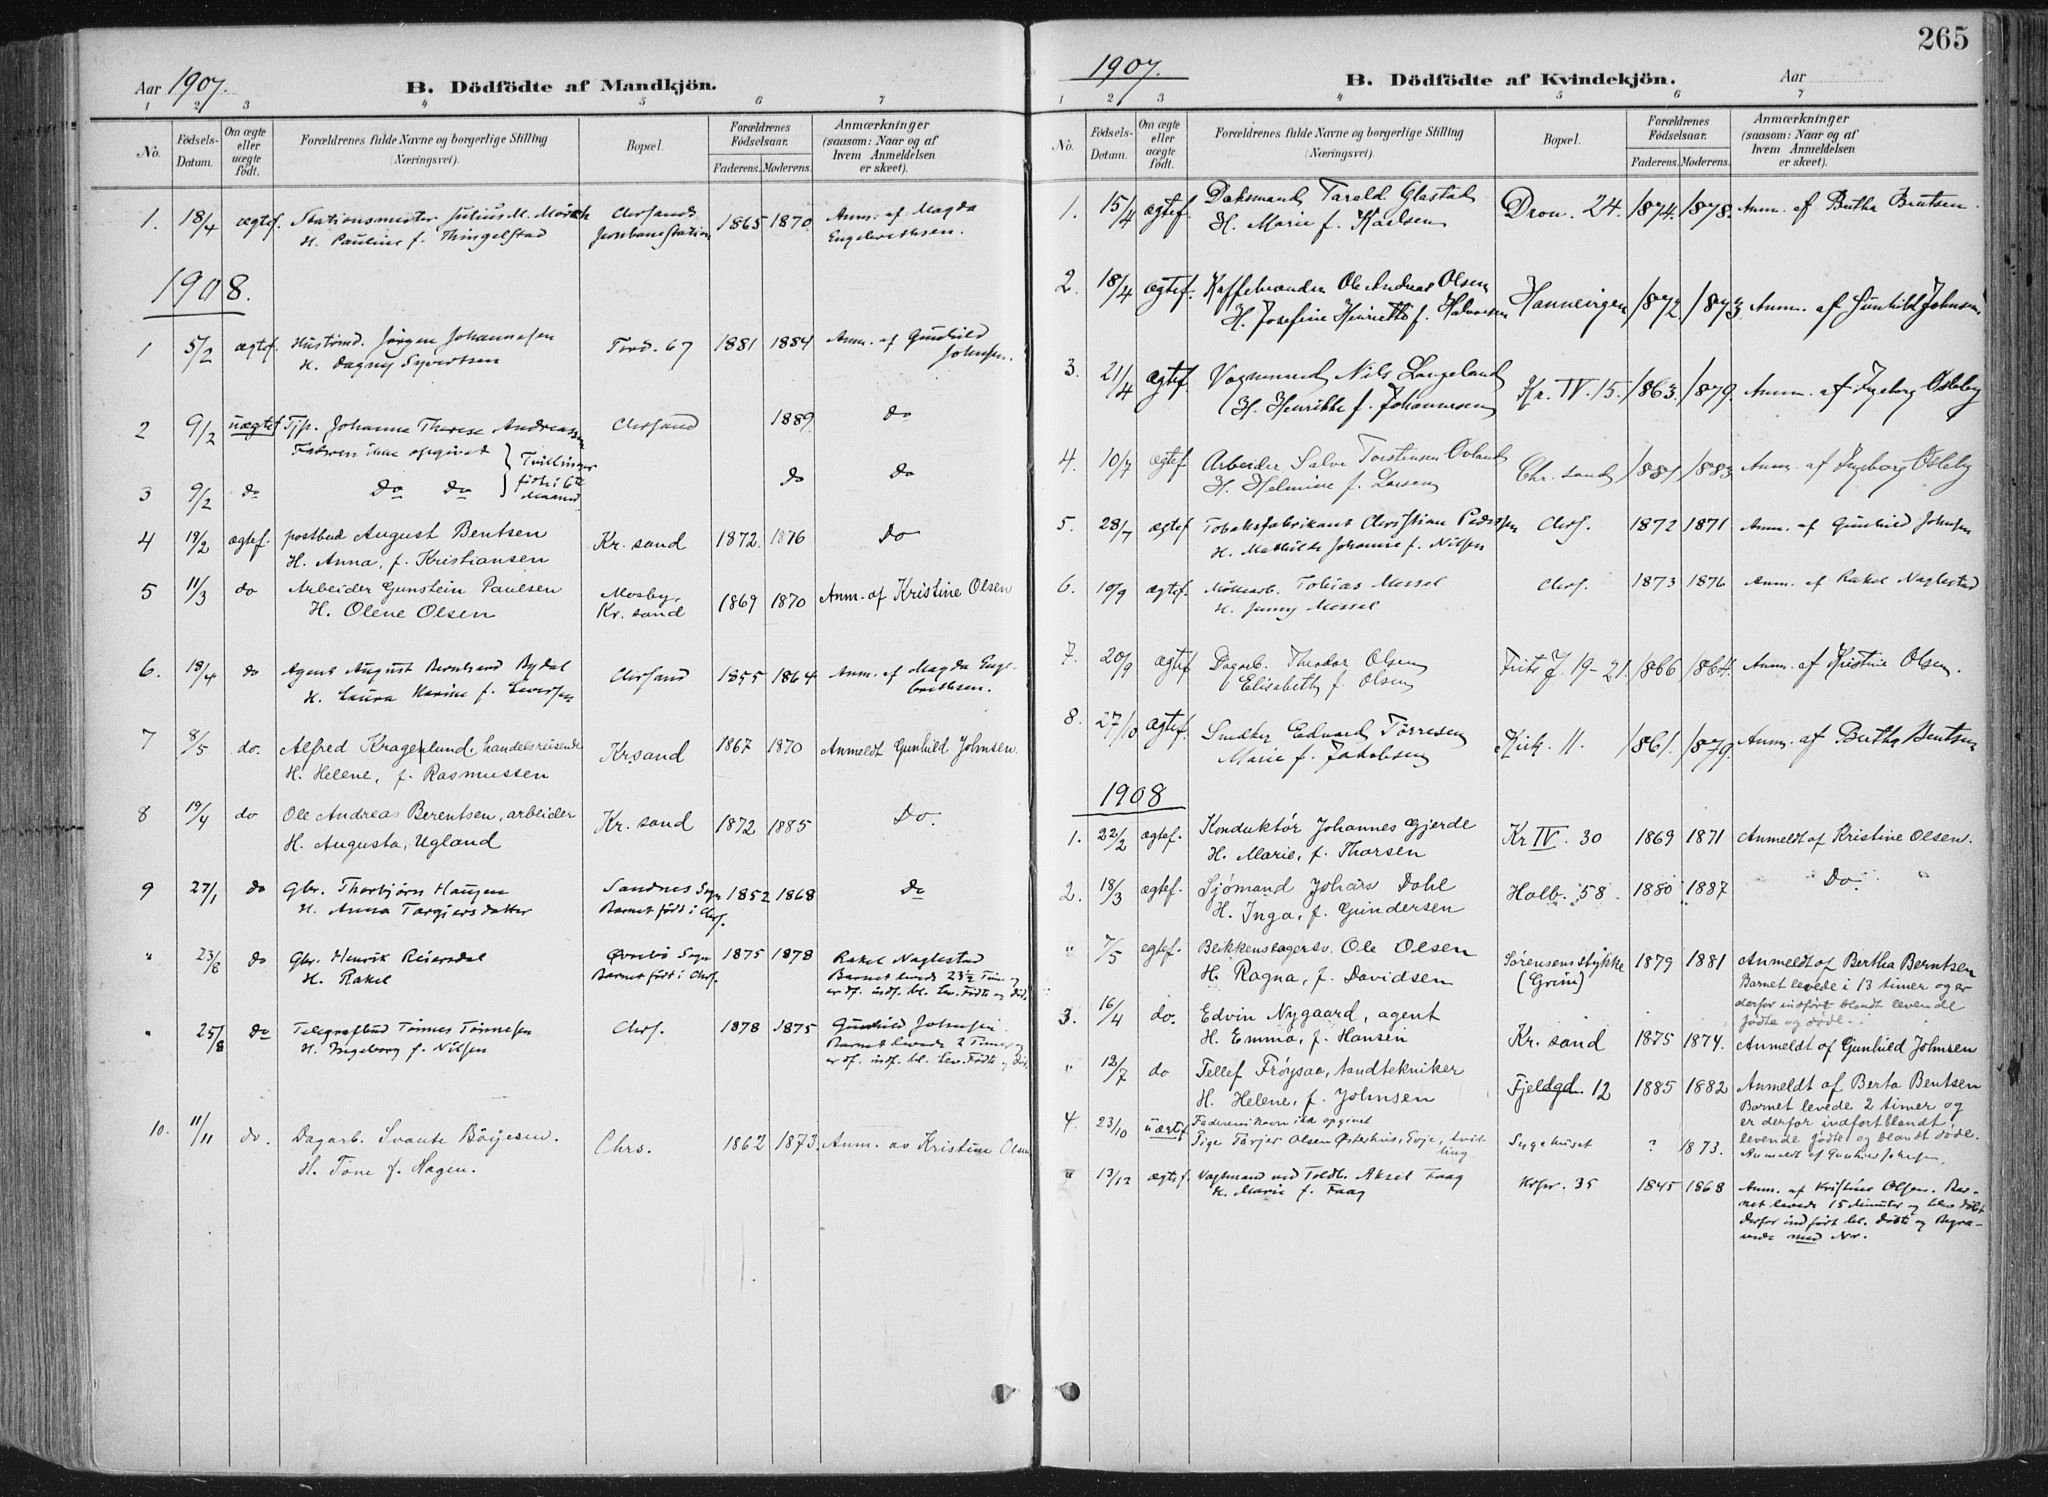 265
Aar 1907.
B. Dödfödte af Mandkjön.
1 2 3 4 5 6 7
No.
Födsels-Datum.
Om ægte eller uægte födt.
Forældrenes fulde Navne og borgerlige Stilling (Næringsvei).
Bopæl.
Forældrenes Födselsaar.
Faderens. Moderens.
Anmærkninger (saasom: Naar og af hvem Anmeldelsen er skeet).
1. 18/4 ægtef. Stationsmester Julius M. Mørch Chrsands 1865 1870 Anm. af Magda
H. Pauline f. Thingelstad Jernbanestation Engebrethsen.
1908.
1 5/2 ægtef. Jørgen Johannesen Tord. 67 1881 1884 Anm. af Gunhild
H. Dagny Syvertsen Johnsen.
2 9/2 uægtef Tjp. Johanne Therese Andreassen Chrsand 1889 do
Faderen ikke opgivet } Tvillinger
3 9/2 do Do do født i 6te do do
Maaned
4 19/2 ægtef. postbud August Bentsen Kr. sand 1872 1876 Do
H. Anna, f. Kristiansen
5 11/3 do Arbeider Gunstein Paulsen Mosby, 1869 1870 Anm. af Kristine Olsen
H. Olene Olsen Kr. sand
6. 18/4 do Agent August Bernhard Rydal Chrsand 1855 1864 Anm. af Magda Enge-
H. Laura Karine f. brethsen.
7 8/5 do. Alfred Kragenlund, handelsreisende Krsand 1867 1870 Anmeldt Gunhild Johnsen.
H. Helene, f. Rasmussen
8 19/4 do Ole Andreas Berentsen, arbeider Kr. sand 1872 1885 Do.
H. Augusta, Ugland
9 27/1 do Gbr. Thorbjørn Haugen Sandnes Sogn 1852 1868 Do
H. Anna Targjersdatter Barnet født i Chrs.
" 23/8 do Gbr. Henrik Reiersdal Øvrebø Sogn 1875 1878 Rakel Naglestad
H. Rakel Barnet født i Chrs. Barnet levede 23½ Time og
er df. indf. bl. lev. Fødte og Død.
" 25/8 do Telegrafbud Tønnes Tønnesen Chrs. 1878 1875 Gunhild Johnsen.
H. Ingeborg f. Nilsen Barnet levede 2 Timer og
er df. indf. bl. lev. Fødte og Død.
10. 11/11 do. Dagarb. Svante Börjesen. Chrs. 1862 1873. Anm. av Kristine Olsen
H. Tone f. Hagen.
1907.
B. Dödfödte af Kvindekjön.
Aar
1 2 3 4 5 6 7
No.
Födsels-Datum.
Om ægte eller uægte födt.
Forældrenes fulde Navne og borgerlige Stilling (Næringsvei).
Bopæl.
Forældrenes Födselsaar.
Faderens. Moderens.
Anmærkninger (saasom: Naar og af hvem Anmeldelsen er skeet).
1. 15/4 ægtef. Tarald Glastad Dron. 24. 1874. 1878. Anm. af Bertha Bentsen.
H. Marie f. Karlsen
2. 18/4 ægtef. Kaffebrænder Ole Andreas Olsen Hannevigen 1872 1873. Anm. af Gunhild Johnsen
H. Josefine Henriette f. Halvorsen
3. 21/4 ægtef. Vognmand Nils Langeland Kr. IV 15. 1863. 1879. Anm. af Ingeborg Osleby
H. Henrikke f. Johannesen
4. 10/7 ægtef Arbeider Salve Torstensen Ovland Chr. sand 1881 1883. Anm. af Ingeborg Osleby
H. Helmine f. Larsen
5. 28/7 ægtef Tobaksfabrikant Christian Pedersen Chrs. 1872 1871 Anm. af Gunhild Johnsen
H. Mathilde Johanne f. Nilsen
6. 10/9 ægtef. Møllearb. Tobias Messel Chrs. 1873 1876 Anm. af Rakel Naglestad
H. Jenny Messel
7. 20/9 ægtef Dagarb. Theodor Olsen Frits J. 19-21. 1866 1864. Anm. af Kristine Olsen.
Elisabeth f. Olsen
8. 27/10 ægtef. Snedker Edvard Tørresen Kirk. 11. 1861. 1879. Anm. af Bertha Bentsen
Marie f. Jakobsen
1908
1. 22/2 ægtef. Konduktør Johannes Gjerde Kr IV. 30 1869 1871 Anmeldt af Kristine Olsen.
H. Marie, f. Thorsen
2. 18/3 ægtef. Sjømand Johans Dahl Holb. 58. 1880 1887 Do.
H. Inga, f. Gundersen
" 7/5 egtef. Blikkenslagersv. Ole Olsen Sörensensstykke 1879 1881 Anmeldt af Bertha Berntsen
H. Ragna, f. Davidsen (Grim) Barnet levede i 13 timer og er
derfor indført blandt levende
fødte og døde.
3. 16/4 do. Edvin Nygaard, agent Kr. sand 1875 1874. Anmeldt af Gunhild Johnsen
H. Emma, f. Hansen
" 12/7 do Tellef Frøysaa, tandtekniker Fjeldgd. 12 1885 1882 Anmeldt af Berta Bentsen
H. Helene, f. Johnsen Barnet levede 2 timer og
er derfor indført blandt
levende fødte og blandt døde.
4. 23/10 uægtef Faderens Navn ikke opgivet
Pige Tarjer Olsen Østerhus, Evje, tvil- Sygehuset ? 1873. Anmeldt af Gunhild Johnsen.
ling
" 13/12 ægtef. Vagtmand ved Toldb. Aksel Faag Krpr. 35 1845 1868 Anm. af Kristine Olsen. Bar-
H. Marie f. Faag net levede 15 Minuter og blev døbt
derfor indført bl. døbte og Begra-
vede med Nr.